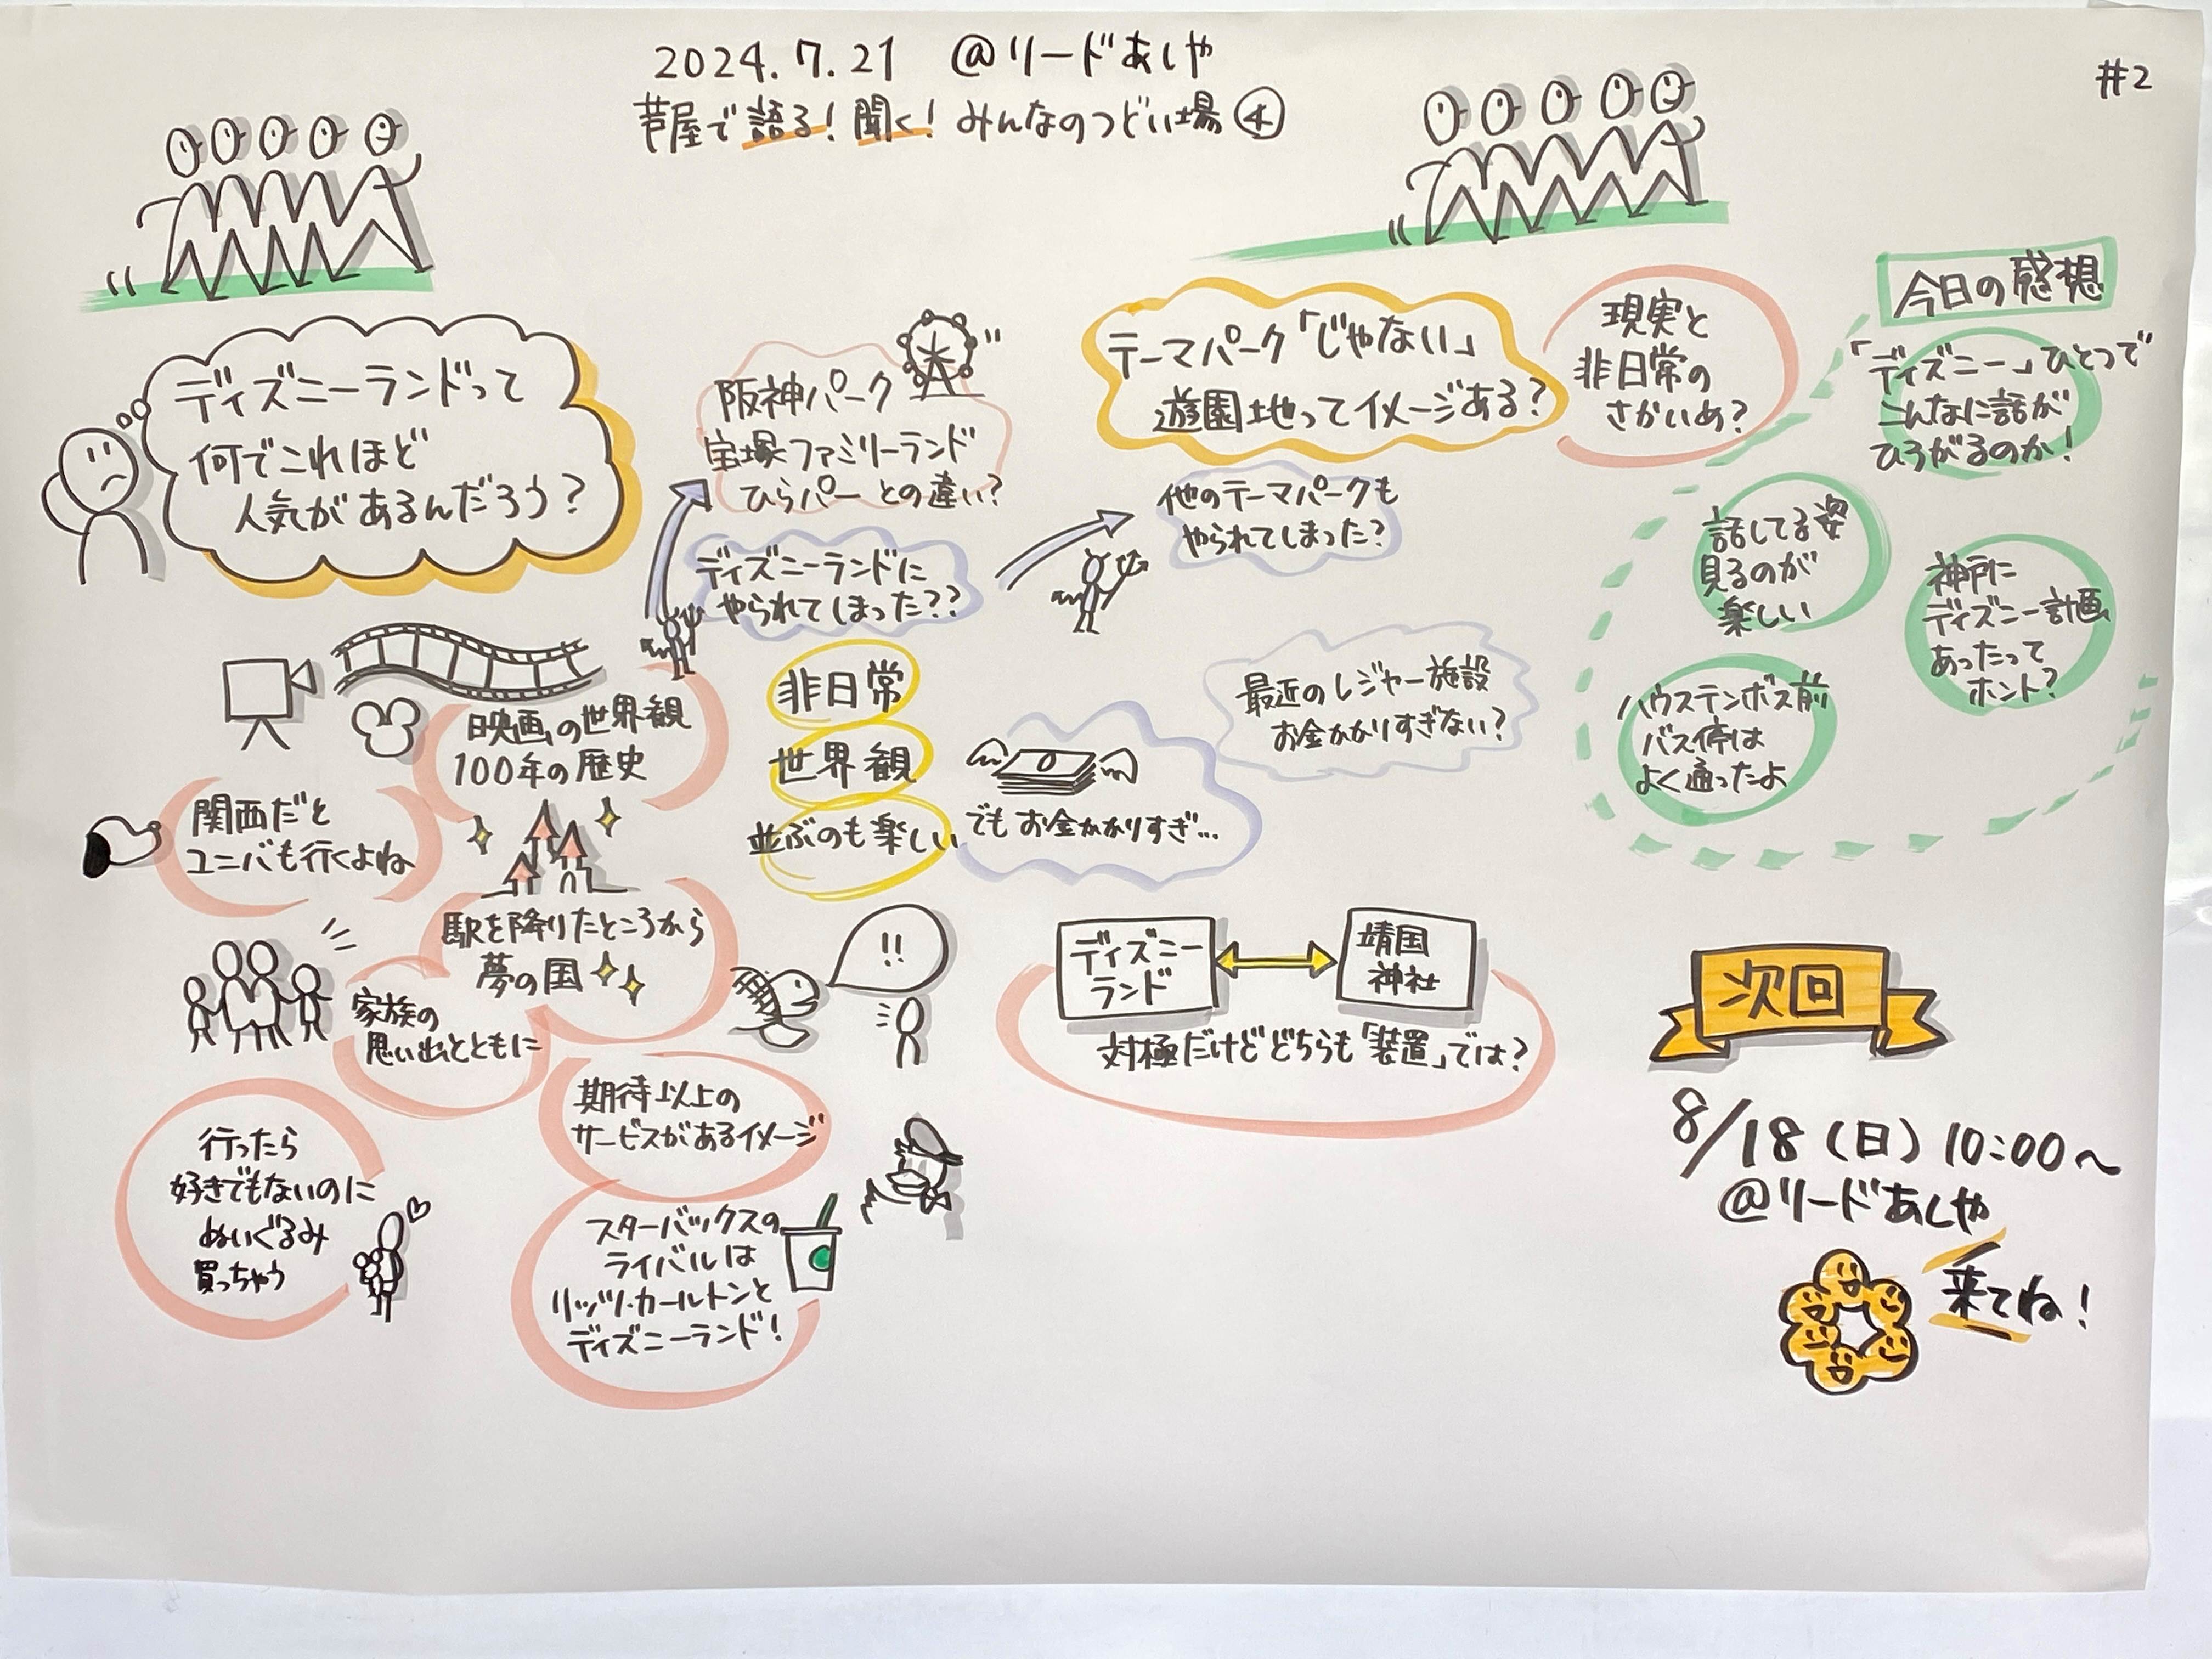 2024.7.21 @リードあしや
芦屋で語る!聞く!みんなのつどい場④
#2
ディズニーランドって
何でこれほど
人気があるんだろう?
阪神パーク
宝塚ファミリーランド
ひらパーとの違い?
ディズニーランドに
やられてしまった??
テーマパーク「じゃない」
遊園地ってイメージある?
他のテーマパークも
やられてしまった?
現実と
非日常の
さかいめ?
映画の世界観
100年の歴史
関西だと
ユニバも行くよね
駅を降りたところから
夢の国
家族の
思い出とともに
行ったら
好きでもないのに
ぬいぐるみ
買っちゃう
期待以上の
サービスがあるイメージ
スターバックスの
ライバルは
リッツ・カールトンと
ディズニーランド!
非日常
世界観
並ぶのも楽しい
でもお金かかりすぎ…
最近のレジャー施設
お金かかりすぎない?
!!
ディズニー
ランド
靖国
神社
対極だけどどちらも「装置」では?
今日の感想
「ディズニー」ひとつで
こんなに話が
ひろがるのか!
話してる姿
見るのが
楽しい
神戸に
ディズニー計画
あったって
ホント?
ハウステンボス前
バス停は
よく通ったよ
次回
8/18(日)10:00~
@リードあしや
来てね!